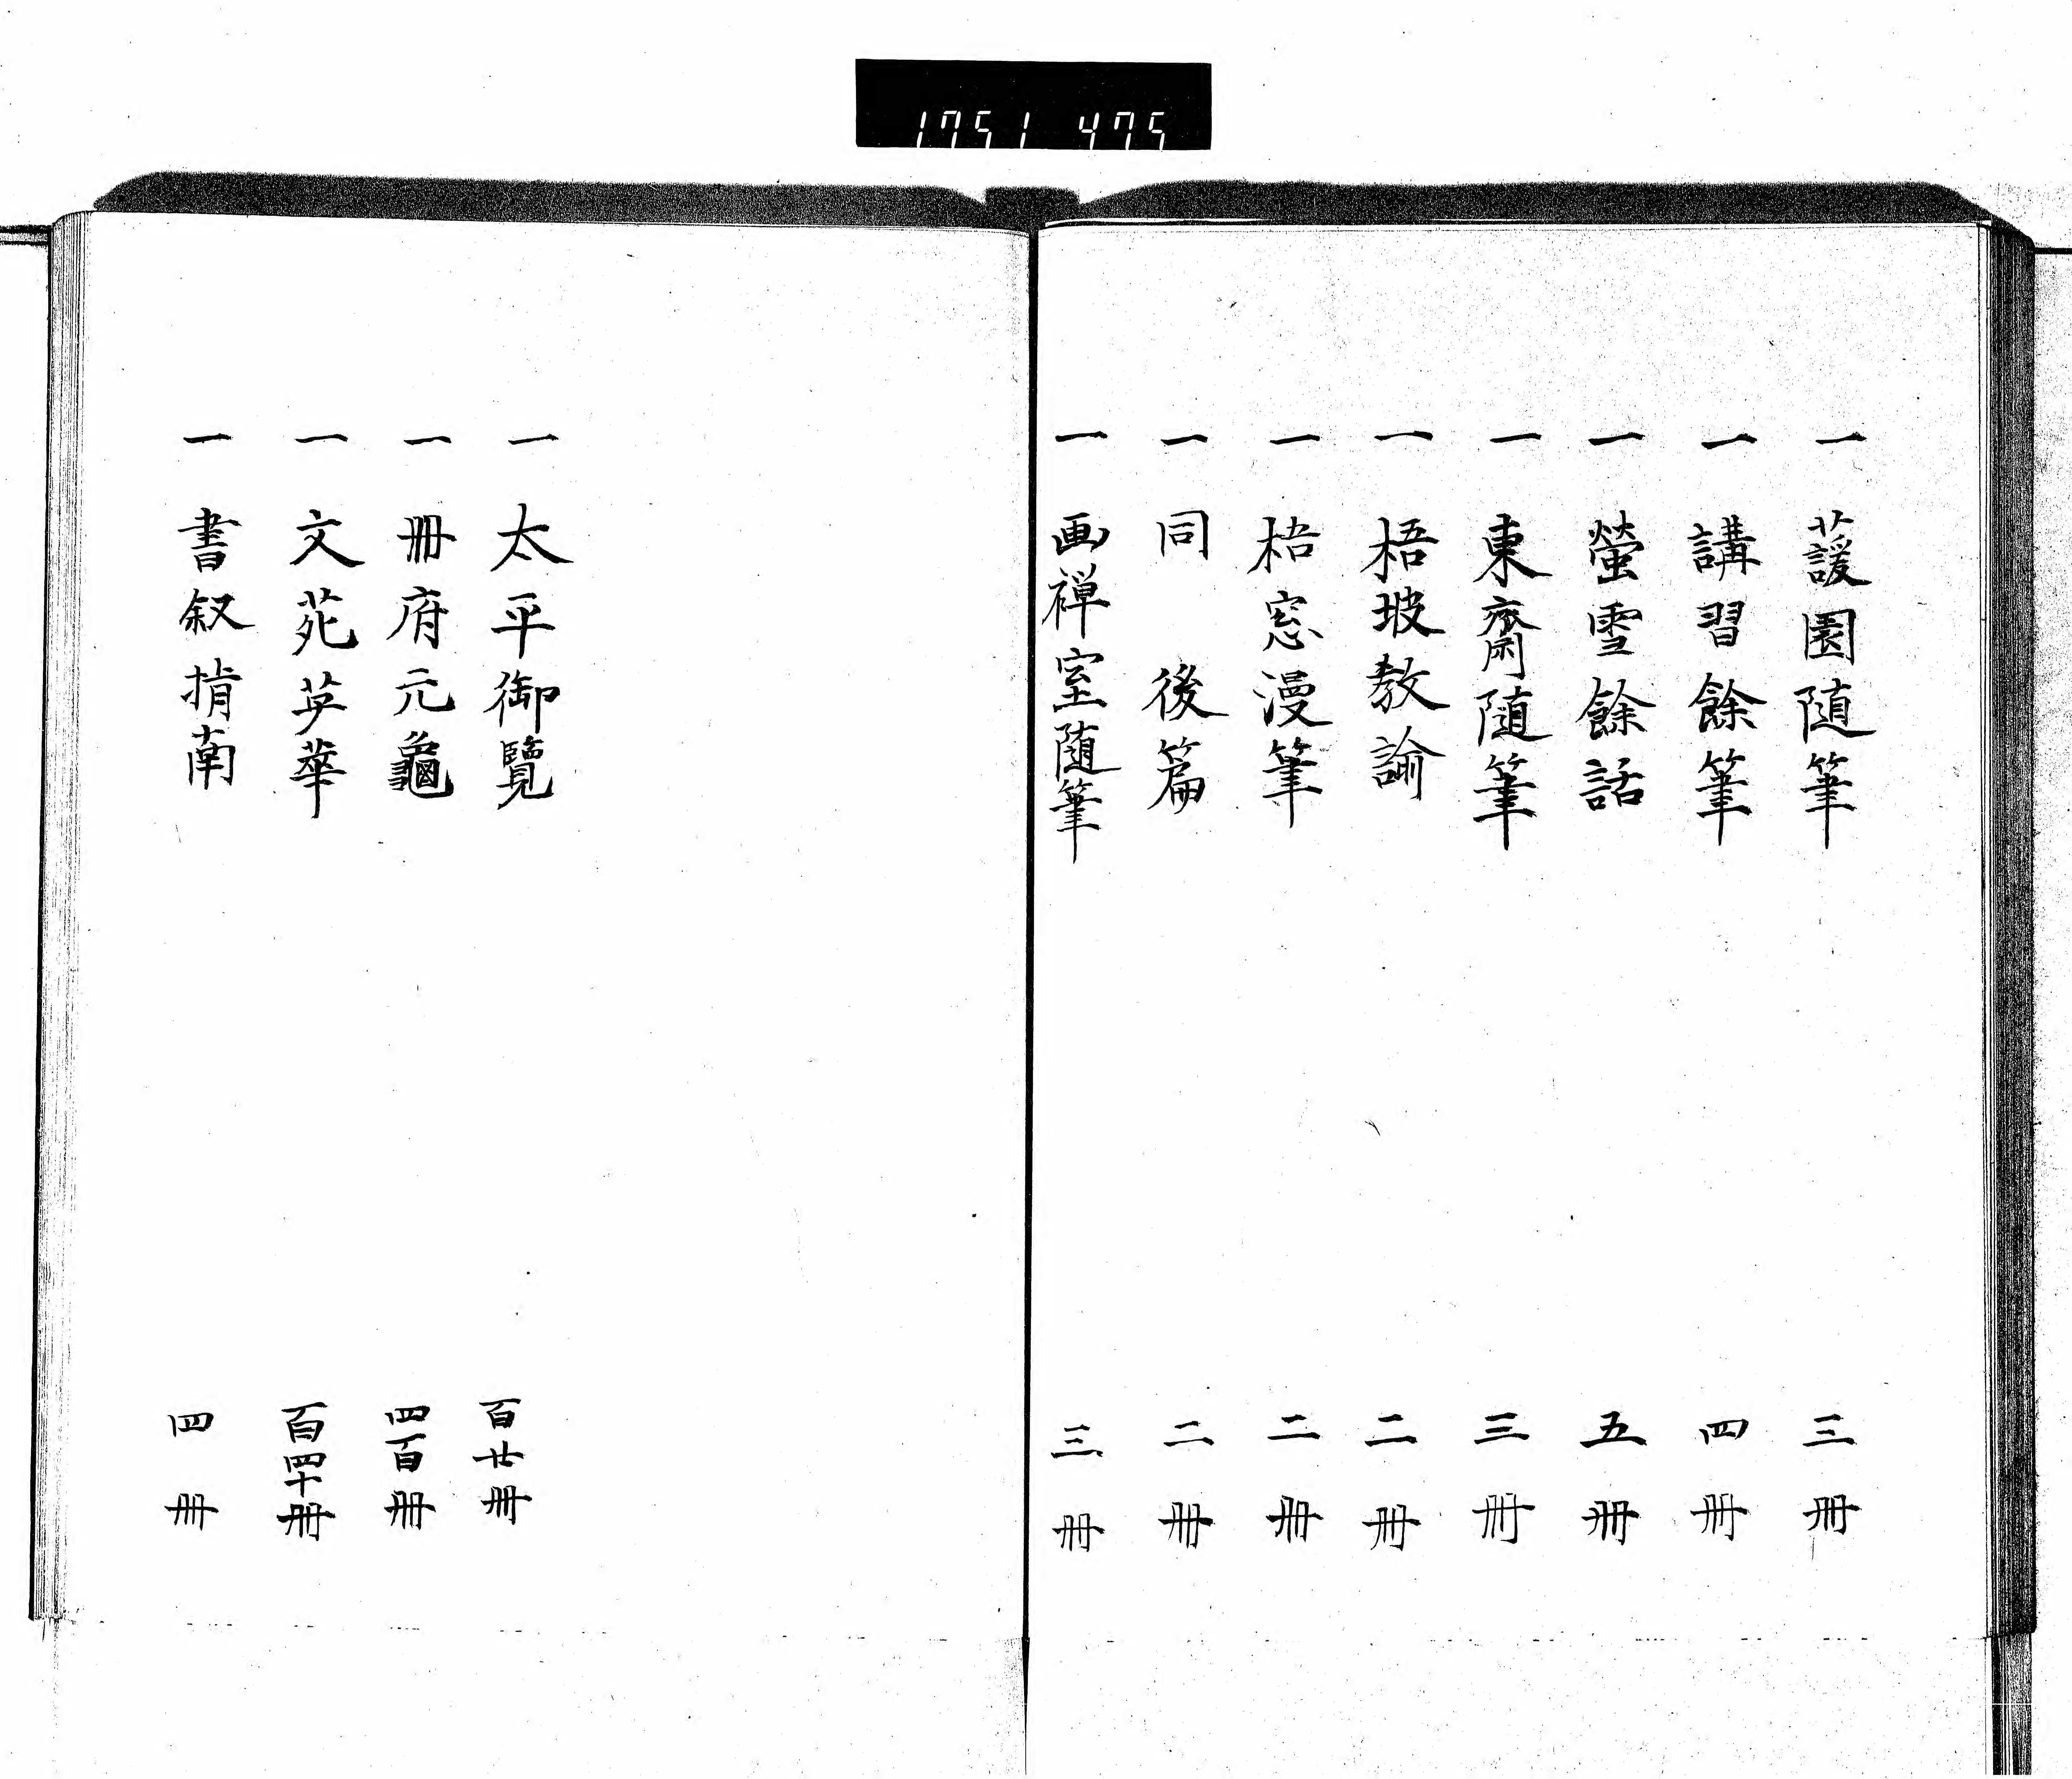 1751 475
一 蘐園随筆 三冊
一 講習餘筆 四冊
一 螢雪餘話 五冊
一 東齋随筆 三冊
一 梧坡教諭 二冊
一 梧窓漫筆 二冊
一 同 後篇 二冊
一 画禅室随筆 三冊
一 太平御覽 百廿冊
一 冊府元龜 四百冊
一 文苑英華 百四十冊
一 書叙指南 四冊